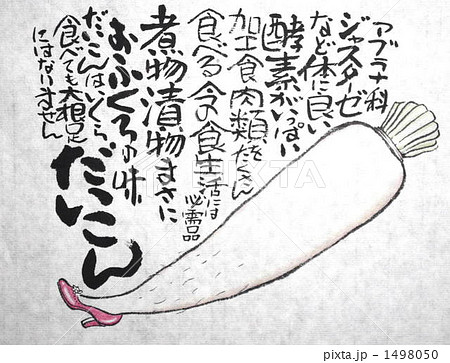 アブラナ科
ジャスターゼ
など体に良い
酵素がいっぱい
加工食肉類をたくさん
食べる今の食生活には
必需品
煮物漬物まさに
おふくろの味
だいこんはいくら
食べても大根足
にはなりません
だいこん
PIXTA
pixta.jp - 1498050